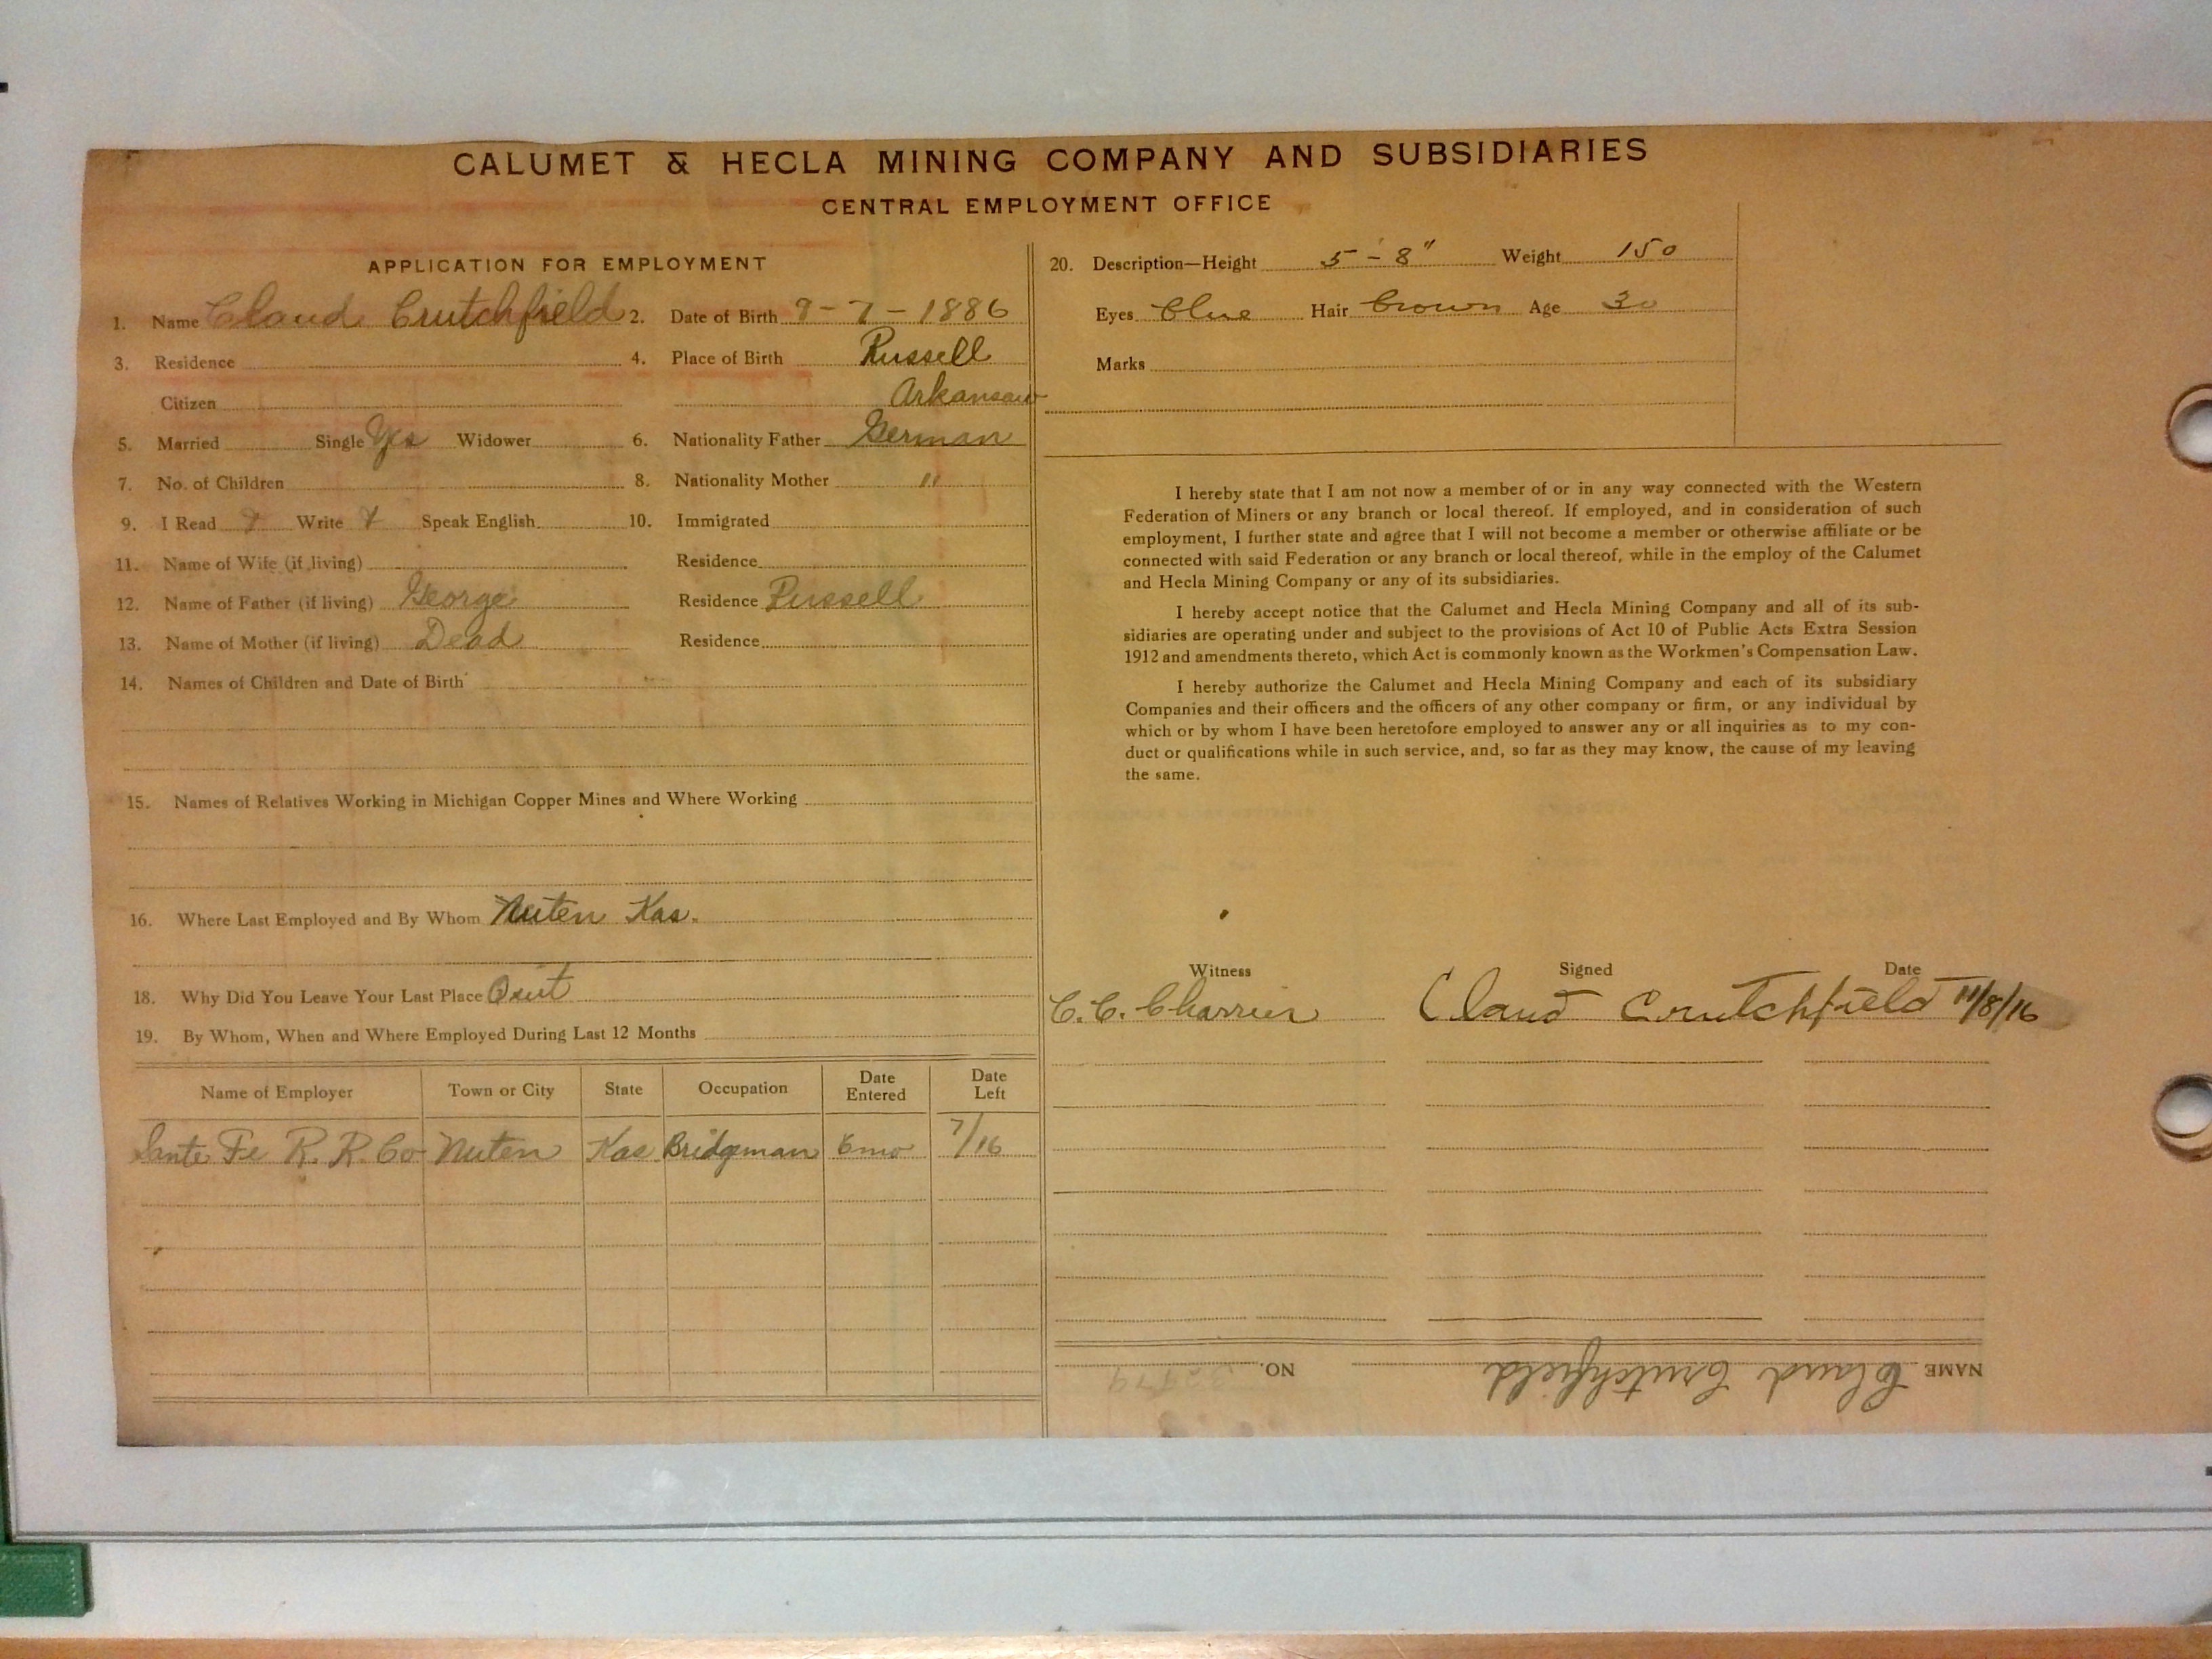 CALUMET & HECLA MINING COMPANY AND SUBSIDIARIES
CENTRAL EMPLOYMENT OFFICE
APPLICATION FOR EMPLOYMENT
1. Name Claud Crutchfield 2. Date of Birth 9-7-1886
3. Residence 4. Place of Birth Russell
Citizen Arkansaw
5. Married Single Yes Widower 6. Nationality Father German
7. No. of Children 8. Nationality Mother "
9. I Read Write Speak English 10. Immigrated
11. Name of Wife (if living) Residence
12. Name of Father (if living) George Residence Russell
13. Name of Mother (if living) Dead Residence
14. Names of Children and Date of Birth
15. Names of Relatives Working in Michigan Copper Mines and Where Working
16. Where Last Employed and By Whom Nuten Kas.
18. Why Did You Leave Your Last Place Quit
19. By Whom, When and Where Employed During Last 12 Months
Name of Employer Town or City State Occupation Date Entered Date Left
Sante Fe R. R. Co Nuten Kas Bridgeman 6 mo 7/16
20. Description—Height 5'-8" Weight 150
Eyes Blue Hair Brown Age 30
Marks
I hereby state that I am not now a member of or in any way connected with the Western
Federation of Miners or any branch or local thereof. If employed, and in consideration of such
employment, I further state and agree that I will not become a member or otherwise affiliate or be
connected with said Federation or any branch or local thereof, while in the employ of the Calumet
and Hecla Mining Company or any of its subsidiaries.
I hereby accept notice that the Calumet and Hecla Mining Company and all of its sub-
sidiaries are operating under and subject to the provisions of Act 10 of Public Acts Extra Session
1912 and amendments thereto, which Act is commonly known as the Workmen's Compensation Law.
I hereby authorize the Calumet and Hecla Mining Company and each of its subsidiary
Companies and their officers and the officers of any other company or firm, or any individual by
which or by whom I have been heretofore employed to answer any or all inquiries as to my con-
duct or qualifications while in such service, and, so far as they may know, the cause of my leaving
the same.
Witness Signed Date
C. C. Charrier Claud Crutchfield 11/8/16
NAME Claud Crutchfield NO.